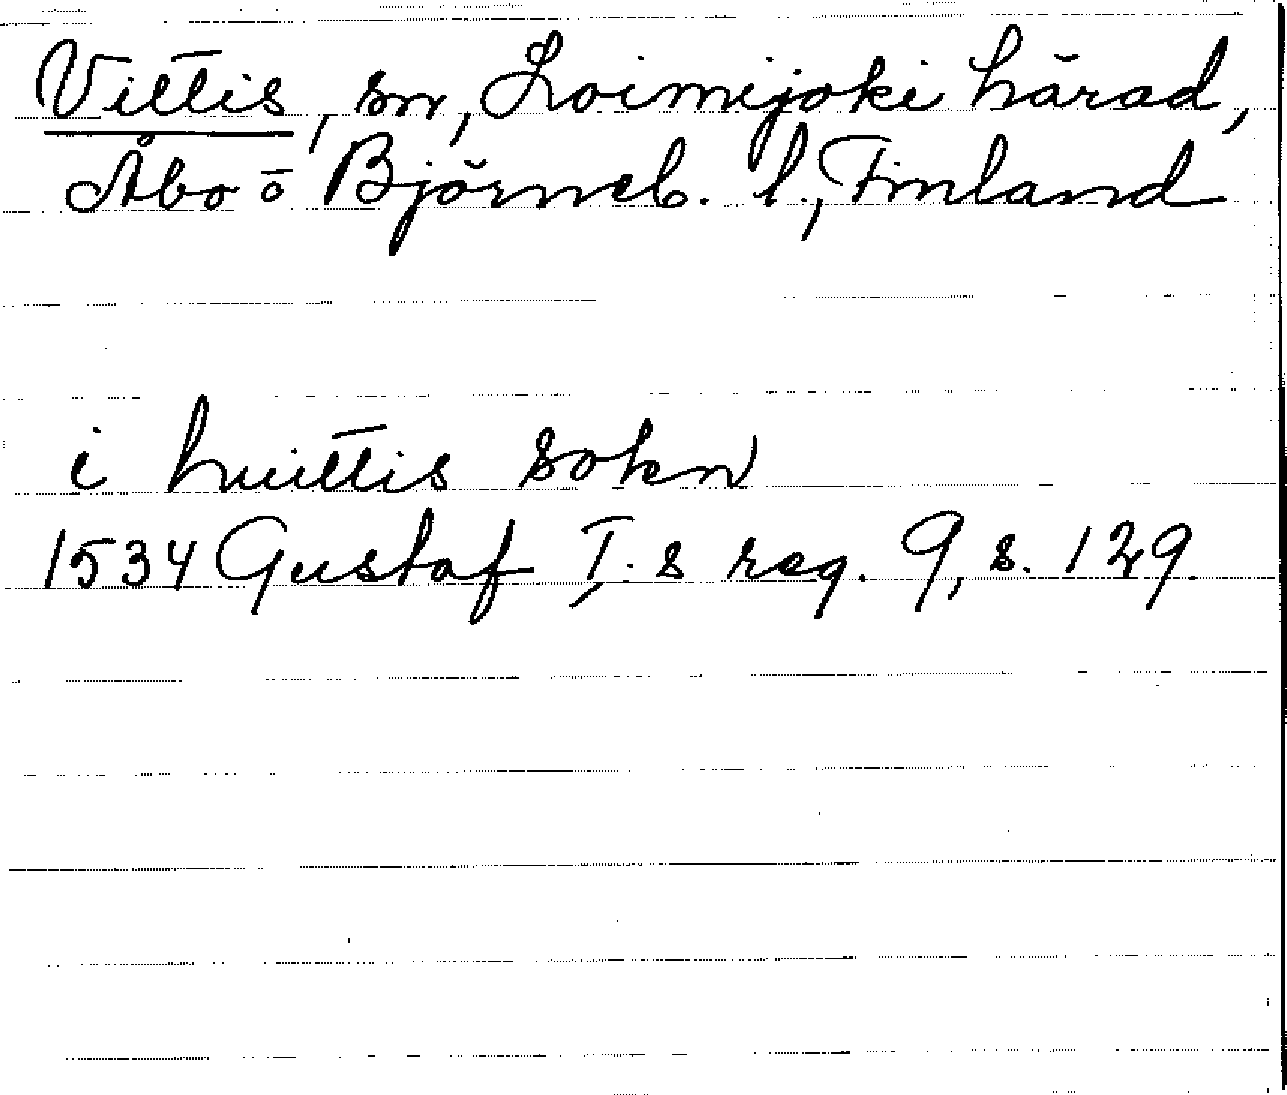 Vittis, sn, Loimijoki härad,
Åbo o Björneb. l., Finland
i huittis sokn
1534 Gustaf I.s reg. 9, s. 129.